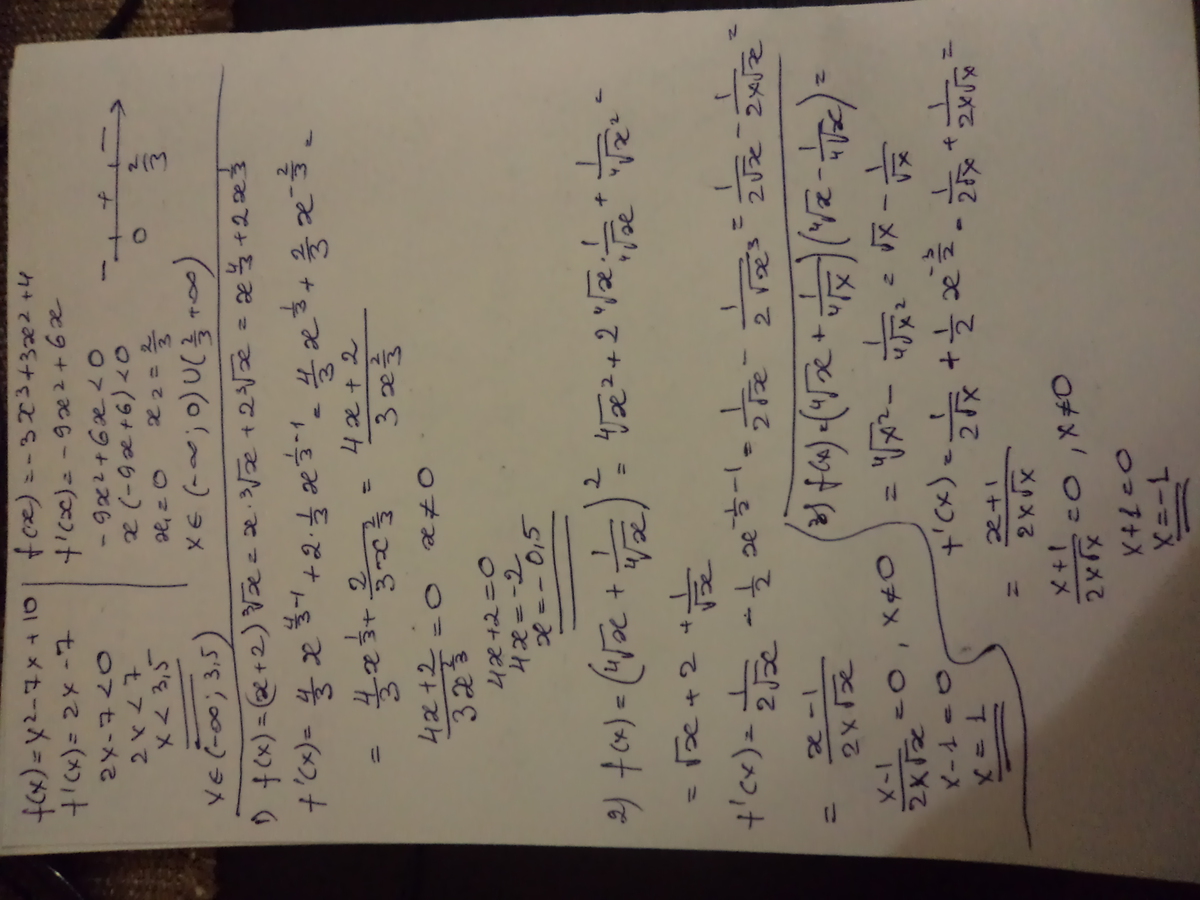 f(x) = x² - 7x + 10
f'(x) = 2x - 7
2x - 7 < 0
2x < 7
x < 3,5
x ∈ (-∞; 3,5)
f(x) = -3x³ + 3x² + 4
f'(x) = -9x² + 6x
-9x² + 6x < 0
x(-9x + 6) < 0
x₁ = 0 x₂ = 2/3
x ∈ (-∞; 0) ∪ (2/3; +∞)
- + -
0 2/3
1) f(x) = (x + 2) ∛x = x · ∛x + 2∛x = x^(4/3) + 2x^(1/3)
f'(x) = 4/3 x^(4/3 - 1) + 2 · 1/3 x^(1/3 - 1) = 4/3 x^(1/3) + 2/3 x^(-2/3) =
= 4/3 x^(1/3) + 2/(3x^(2/3)) = (4x + 2)/(3x^(2/3))
(4x + 2)/(3x^(2/3)) = 0 x ≠ 0
4x + 2 = 0
4x = -2
x = -0,5
2) f(x) = (∜x + 1/∜x)² = ∜x² + 2∜x · 1/∜x + 1/∜x² =
= √x + 2 + 1/√x
f'(x) = 1/(2√x) - 1/2 x^(-1/2 - 1) = 1/(2√x) - 1/(2√x³) = 1/(2√x) - 1/(2x√x) =
= (x - 1)/(2x√x)
(x - 1)/(2x√x) = 0, x ≠ 0
x - 1 = 0
x = 1
3) f(x) = (∜x + 1/∜x)(∜x - 1/∜x) =
= ∜x² - 1/∜x² = √x - 1/√x
f'(x) = 1/(2√x) + 1/2 x^(-3/2) = 1/(2√x) + 1/(2x√x) =
= (x + 1)/(2x√x)
(x + 1)/(2x√x) = 0, x ≠ 0
x + 1 = 0
x = -1